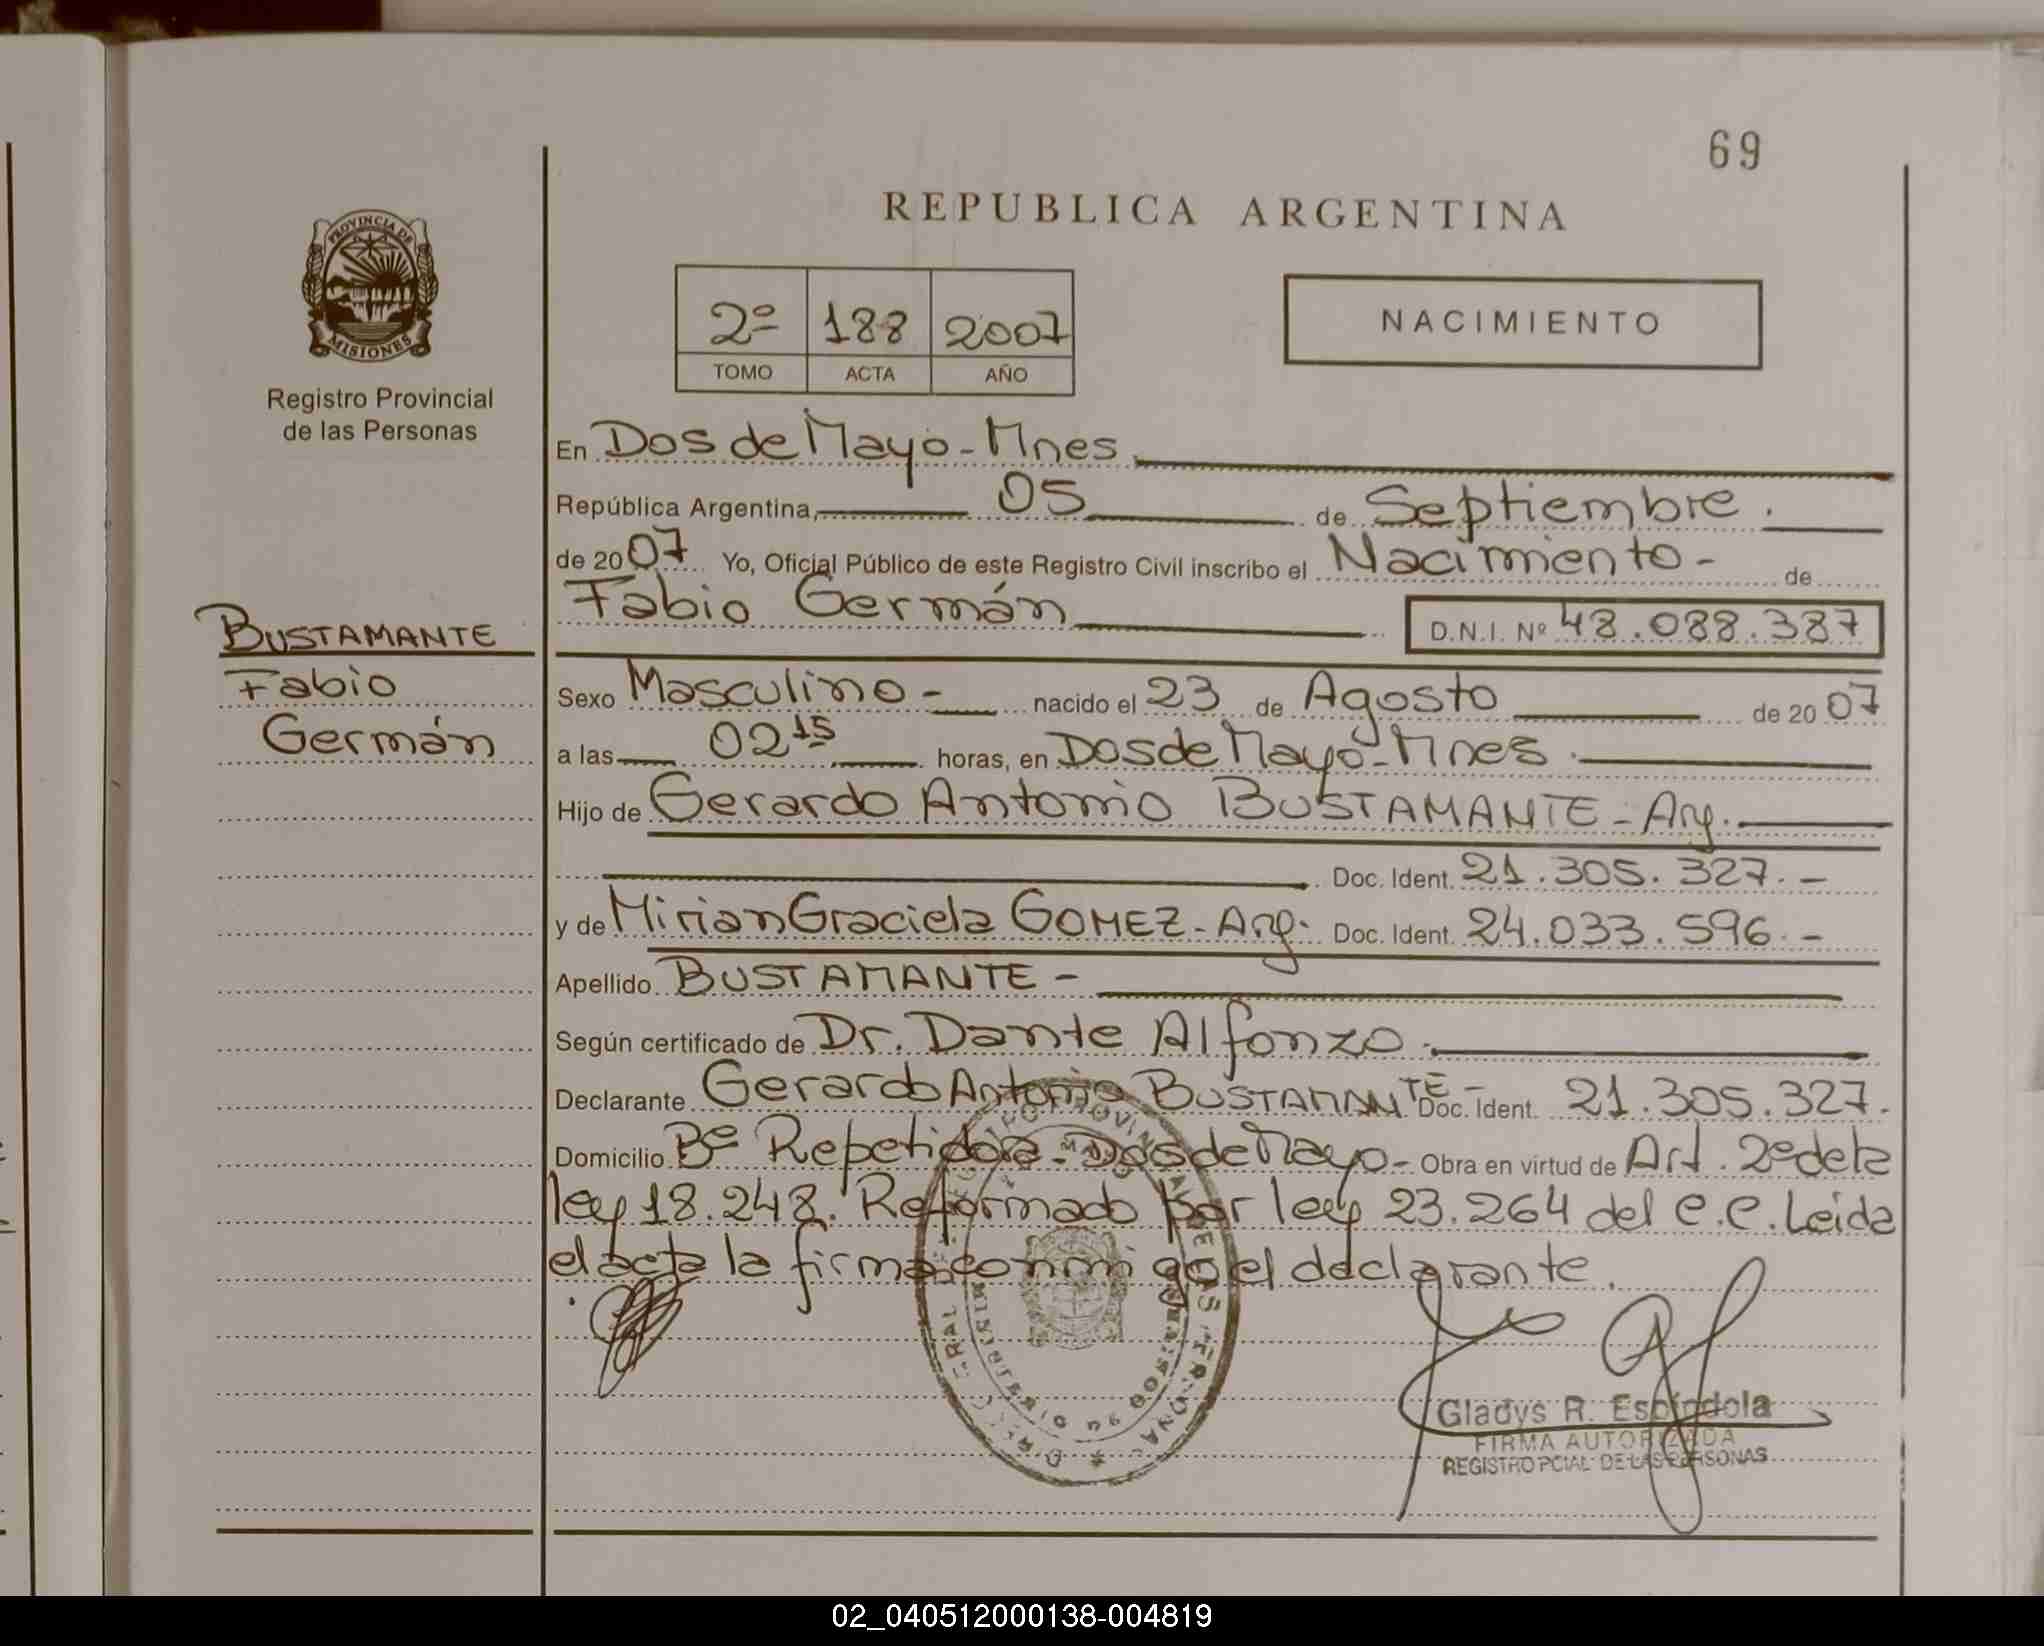 69
REPUBLICA ARGENTINA
PROVINCIA DE
MISIONES
Registro Provincial
de las Personas
2º 188 2007
TOMO ACTA AÑO
NACIMIENTO
En Dos de Mayo - Mnes
República Argentina, 05 de Septiembre.
de 2007 Yo, Oficial Público de este Registro Civil inscribo el Nacimiento - de
Fabio Germán D.N.I. Nº 48.088.387
BUSTAMANTE
Fabio
Germán
Sexo Masculino - nacido el 23 de Agosto de 2007
a las 02 15 horas, en Dos de Mayo - Mnes.
Hijo de Gerardo Antonio BUSTAMANTE - Arg.
Doc. Ident. 21.305.327. -
y de Mirian Graciela GOMEZ - Arg. Doc. Ident. 24.033.596. -
Apellido BUSTAMANTE -
Según certificado de Dr. Dante Alfonzo.
Declarante Gerardo Antonio BUSTAMANTE - Doc. Ident. 21.305.327.
Domicilio Bº Repetidora - Dos de Mayo - Obra en virtud de Art. 2º de la
ley 18.248. Reformado por ley 23.264 del C.C. Leida
el acta la firma conmigo el declarante.
Gladys R. Espíndola
FIRMA AUTORIZADA
REGISTRO PCIAL DE LAS PERSONAS
MINISTERIO DE GOBIERNO
02_040512000138-004819